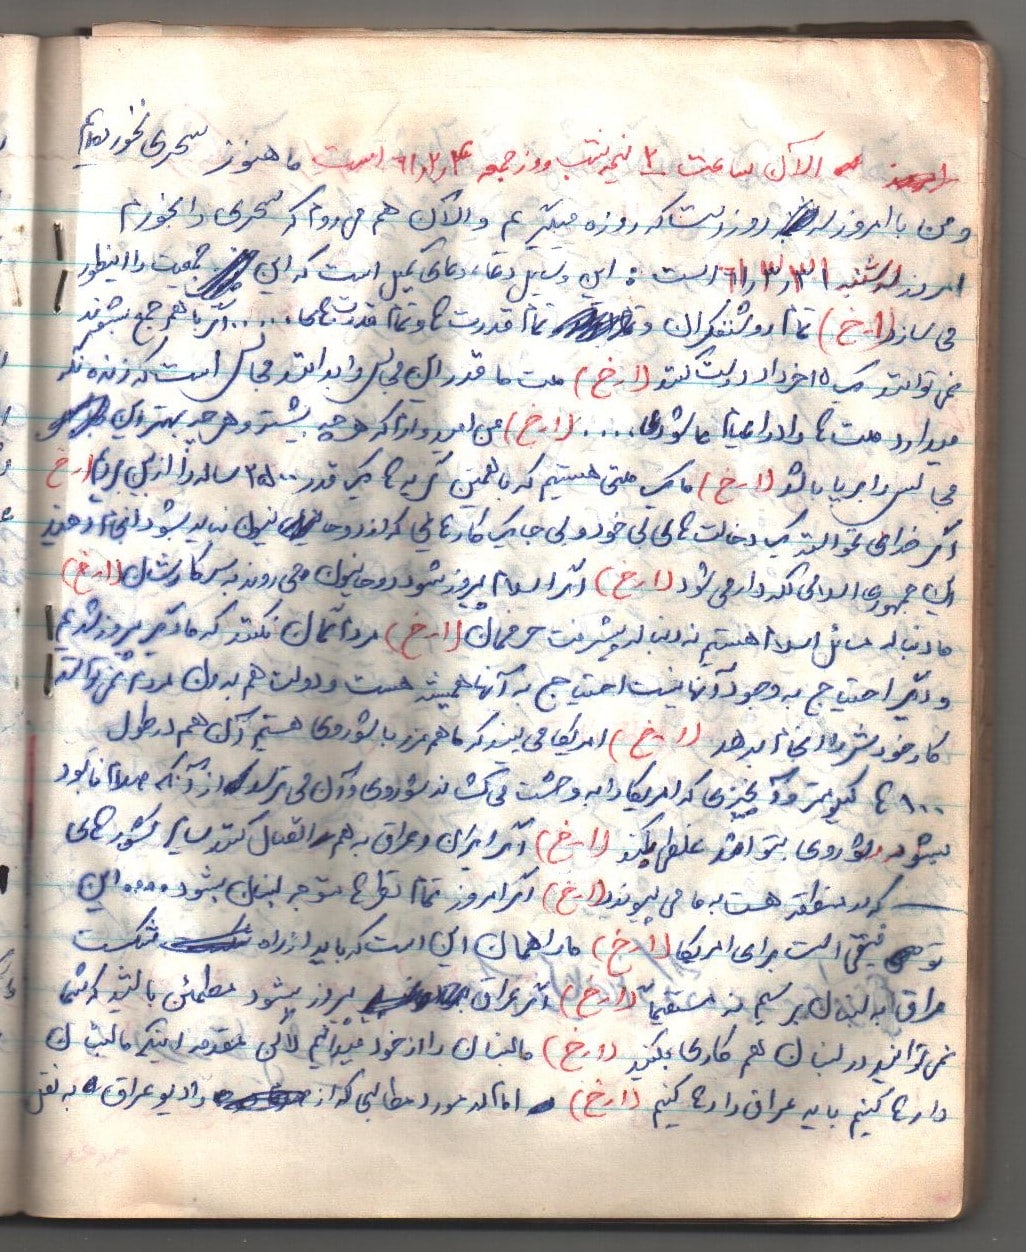 الآن ساعت ۲ نیمه شب روز جمعه ۶۱/۲/۴ است ما هنوز سحری نخورده‌ایم
و من با امروز روز است که روزه میگیرم و الآن هم می روم که سحری را بخورم
امروز ۶۱/۳/۳۱ است : این وسایل دعا، دعای کمیل است که این جمعیت را اینطور
می سازد (ا-خ) تمام روشنفکران و تمام قدرت ها و تمام قدرتهای ..... اگر با هم جمع بشوند
نمی توانند یک ۱۵ خرداد درست کنند (ا-خ) ملت ما قدر این مجالس را بدانند مجالسی است که زنده نگه
میدارد ملت ها را در ایام عاشورا ..... (ا-خ) من امیدوارم که هر چه بیشتر و هر چه بهتر این
مجالس را برپا باشد (ا-خ) ما یک ملتی هستیم که با همین گریه ها یک قدرت ۲۵۰۰ ساله را از بین بردیم (ا-خ
اگر خدای نخواسته یک دخالت های بی خود و بی جا یک کارهایی که از روحانیون نباید بشود انجام دهند
این جمهوری اسلامی لکه دار می شود (ا-خ) اگر اسلام پیروز شود روحانیون می روند به سر کارشان (ا-خ)
ما دنبال مسائل اسلام هستیم نه دنبال پیشرفت حرفمان (ا-خ) مردم گمان نکنند که ما دیگر پیروز شدیم
و دیگر احتیاج به وجود آنها نیست احتیاج به آنها همیشه هست و دولت هم بدون مردم نمی تواند
کار خودش را انجام بدهد (ا-خ) امریکا می بیند که ما هم مرز با شوروی هستیم آن هم در طول
۸۰۰۰ ها کیلومتر و آن چیزی که امریکا را به وحشت می کشاند شوروی و آن می ترسد از آنکه صدام نابود
بشود و شوروی بتواند غلطی بکند (ا-خ) اگر ایران و عراق به هم اتصال کنند سایر کشورهای
که در منطقه هست به ما می پیوندند (ا-خ) اگر امروز تمام نظرها متوجه لبنان بشود .... این
توفیقی است برای امریکا (ا-خ) ما راهمان این است که باید از راه شکست
عراق به لبنان برسیم نه مستقیما (ا-خ) اگر عراق پیروز بشود مطمئن باشید که شما
نمی توانید در لبنان هم کاری بکنید (ا-خ) ما لبنان را از خود میدانیم لاکن مقدمه اینکه ما لبنان
را رها کنیم باید عراق را رها کنیم (ا-خ) اما در مورد مطالبی که از رادیو عراق به نقل